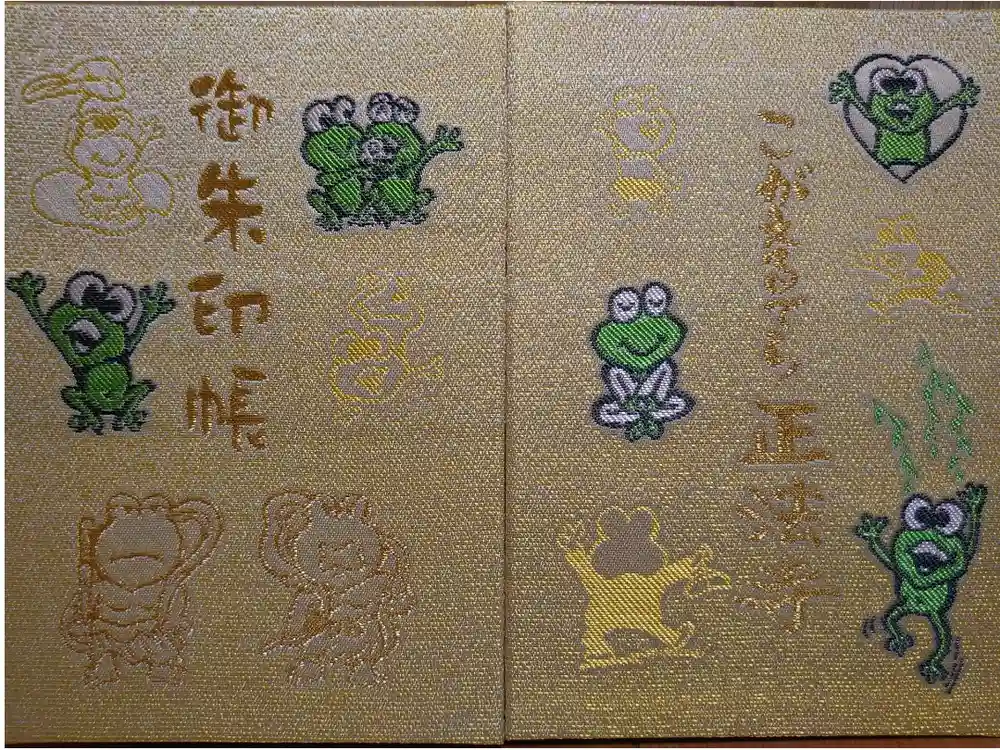 御朱印帳
こがえるでら 正法寺